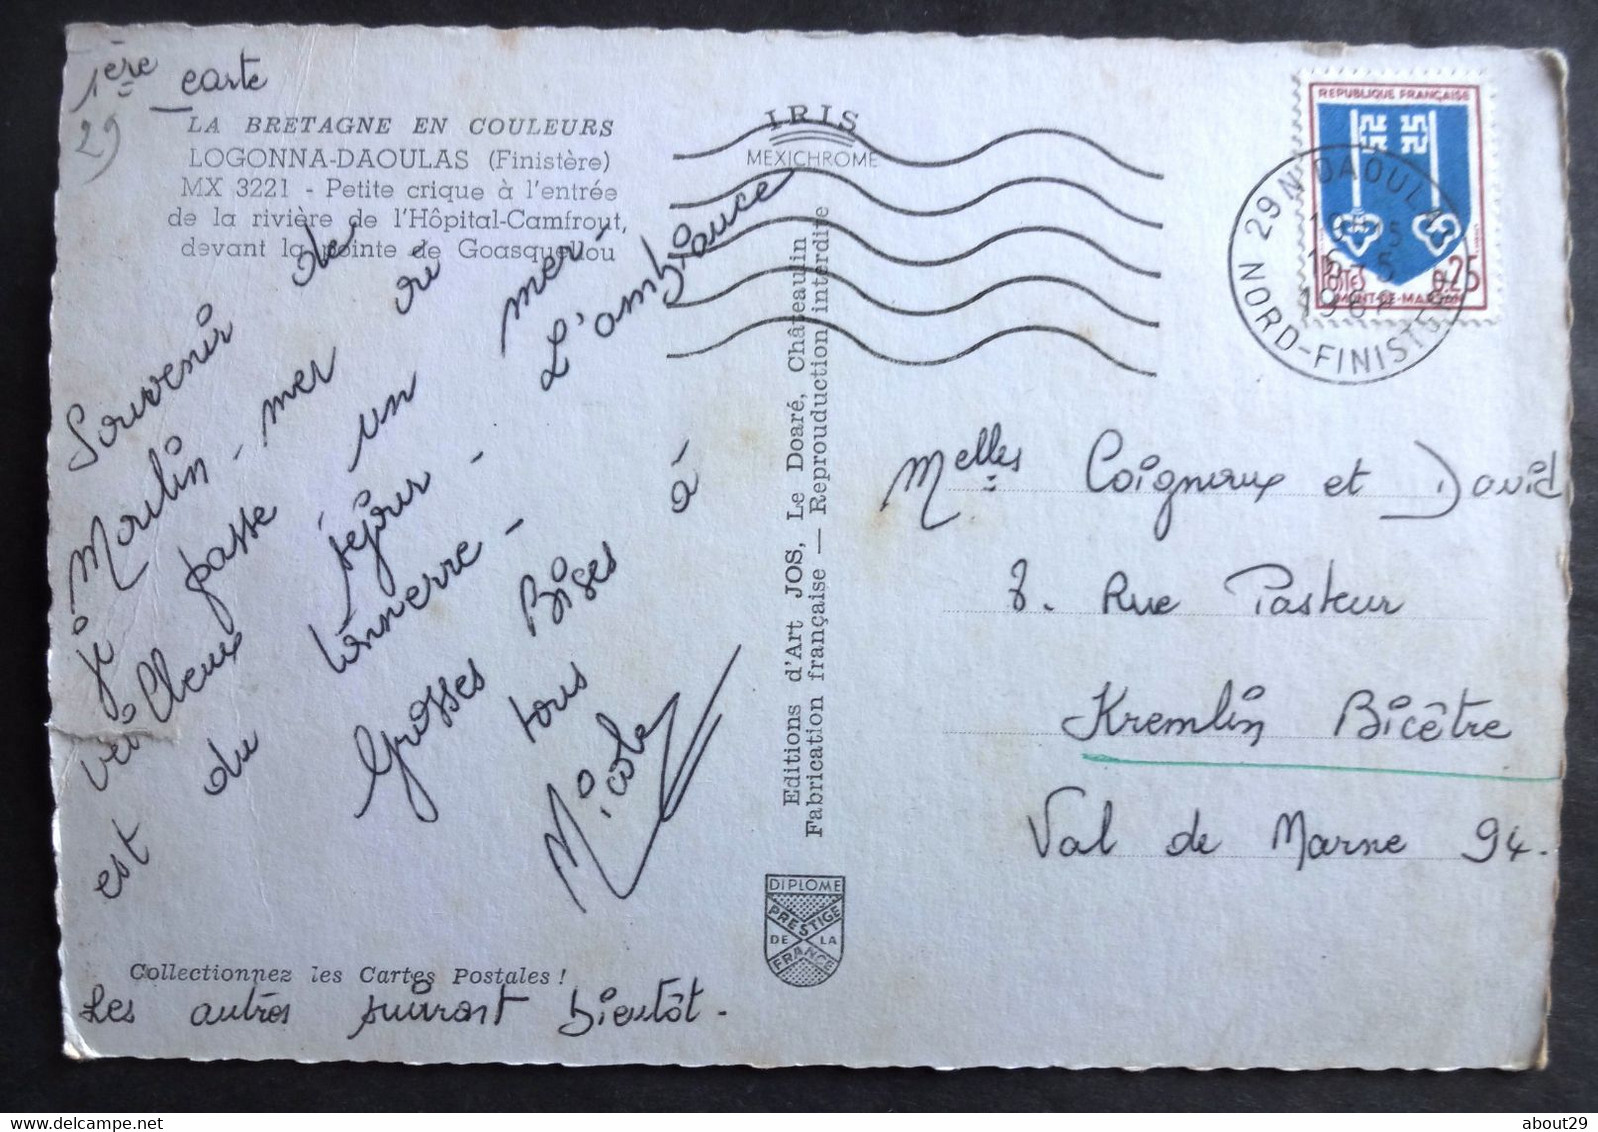 1ère carte
29
LA BRETAGNE EN COULEURS
LOGONNA-DAOULAS (Finistère)
MX 3221 - Petite crique à l'entrée
de la rivière de l'Hôpital-Camfrout,
devant la pointe de Goasquellou
IRIS
MEXICHROME
Souvenir de
Moulin-mer où
je passe un mer-
veilleux séjour - L'ambiance
est du tonnerre -
Grosses Bises à
tous
Nicole
Collectionnez les Cartes Postales !
Les autres suivront bientôt.
Editions d'Art JOS, Le Doaré, Châteaulin
Fabrication française — Reproduction interdite
DIPLOME
PRESTIGE
DE LA
FRANCE
REPUBLIQUE FRANÇAISE
POSTES 0,25
MONT-DE-MARSAN
29N DAOULAS
15-5
1967
NORD-FINISTERE
Melles Coigneux et David
8. Rue Pasteur
Kremlin Bicêtre
Val de Marne 94.
about29